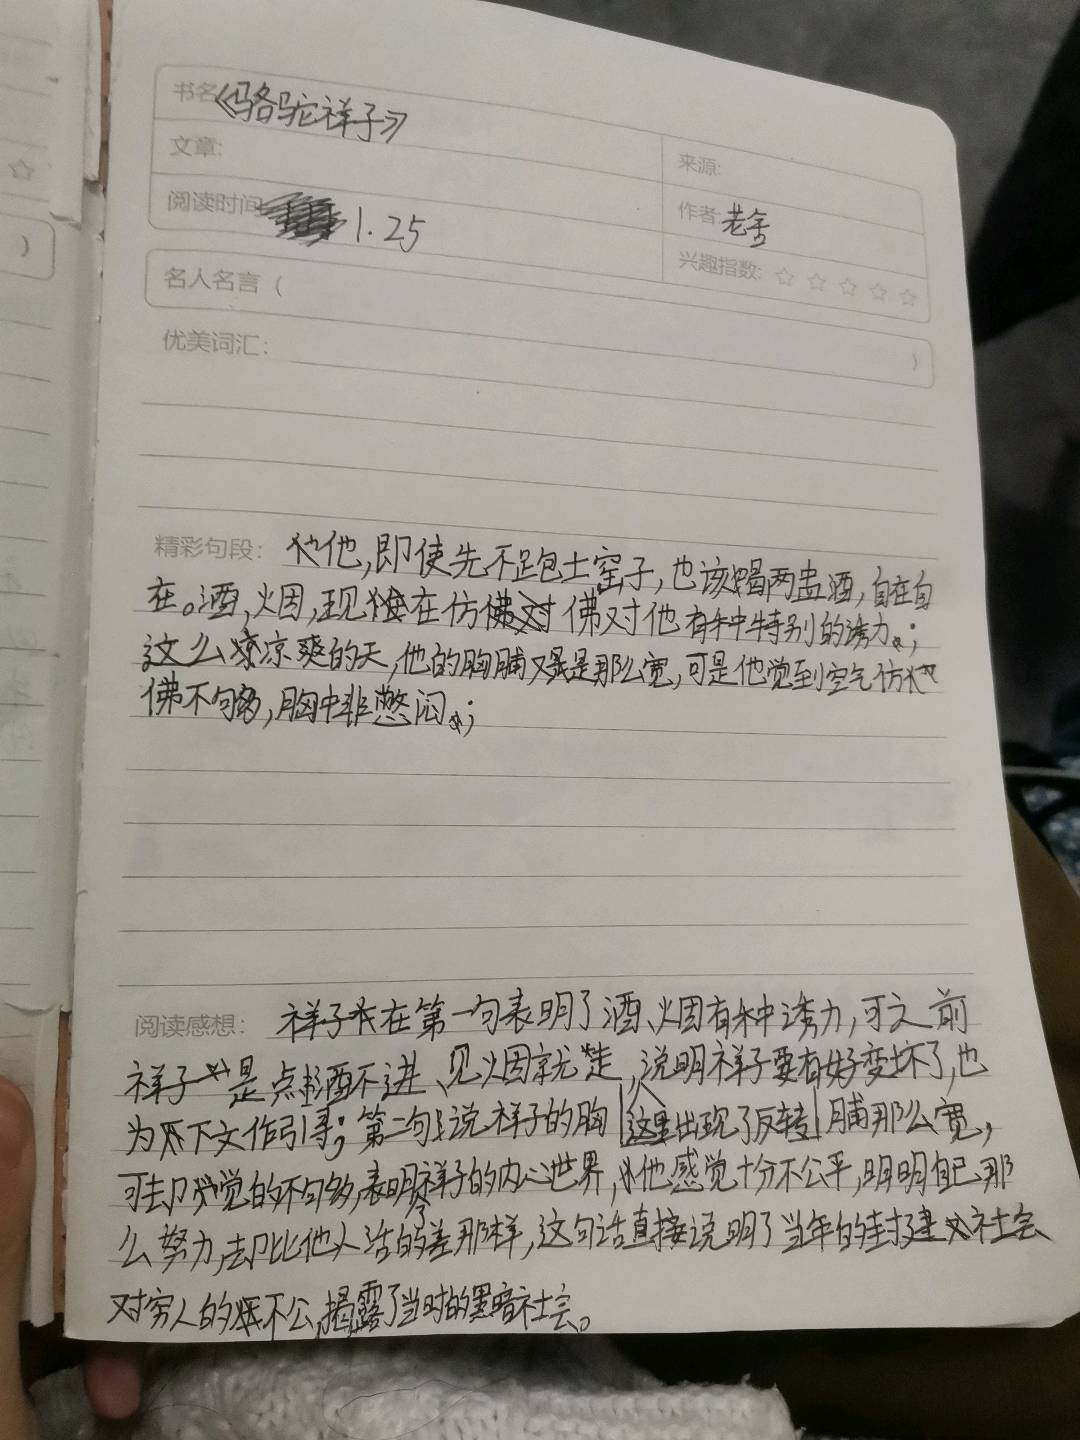 书名 《骆驼祥子》
文章:
来源:
阅读时间 1.25
作者: 老舍
兴趣指数: ☆ ☆ ☆ ☆ ☆
名人名言（
）
优美词汇:
精彩句段: 他,即使先不跑土窑子,也该喝两盅酒,自在自
在。酒,烟,现在仿佛对他有种特别的诱力。;
这么凉爽的天,他的胸脯又是那么宽,可是他觉到空气仿
佛不够,胸中非憋闷。;
阅读感想: 祥子在第一句表明了酒、烟有种诱力,可之前
祥子是点酒不进、见烟就走,说明祥子要有好变坏了,也
为下文作引导;第二句说祥子的胸 这里出现了反转 脯那么宽,
可却觉的不够,表明祥子的内心世界,他感觉十分不公平,明明自己那
么努力,却比他人活的差那样,这句话直接说明了当年的封建社会
对穷人的不公,揭露了当时的黑暗社会。